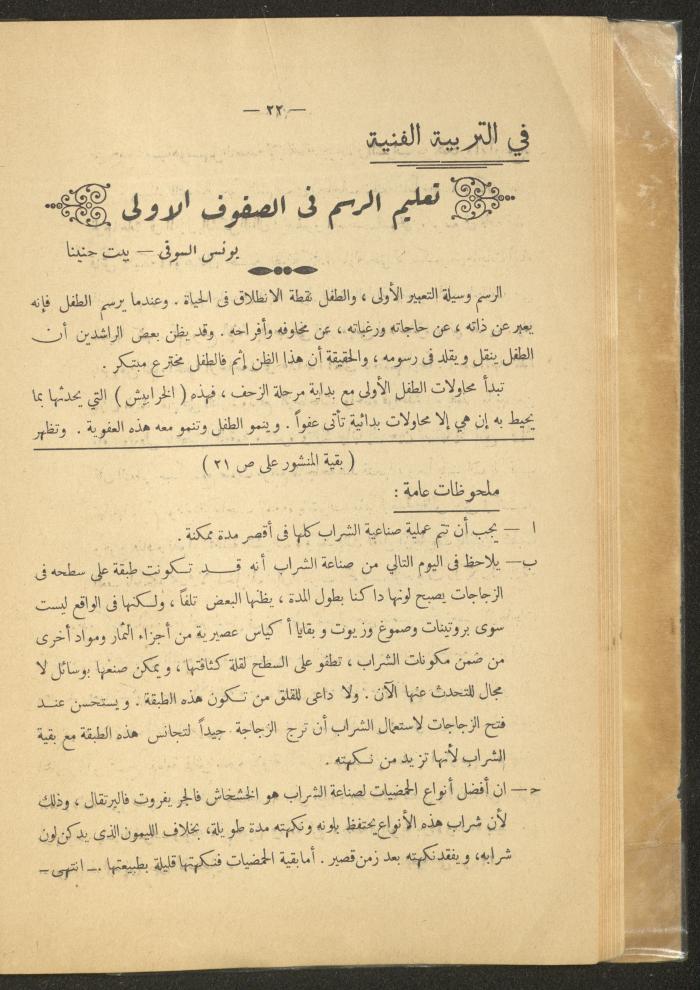 — ٢٢ —
في التربية الفنية
تعليم الرسم في الصفوف الاولى
يونس السوقي — بيت حنينا
الرسم وسيلة التعبير الأولى ، والطفل نقطة الانطلاق في الحياة . وعندما يرسم الطفل فإنه
يعبر عن ذاته ، عن حاجاته ورغباته ، عن مخاوفه وأفراحه . وقد يظن بعض الراشدين أن
الطفل ينقل و يقلد في رسومه ، والحقيقة أن هذا الظن إثم فالطفل مخترع مبتكر .
تبدأ محاولات الطفل الأولى مع بداية مرحلة الزحف ، فهذه ( الخرابيش ) التي يحدثها بما
يحيط به إن هي إلا محاولات بدائية تأتى عفواً . و ينمو الطفل وتنمو معه هذه العفوية . وتظهر
( بقية المنشور على ص ٢١ )
ملحوظات عامة :
ا — يجب أن تتم عملية صناعية الشراب كلها فى أقصر مدة ممكنة .
ب — يلاحظ فى اليوم التالي من صناعة الشراب أنه قد تكونت طبقة على سطحه فى
الزجاجات يصبح لونها داكنا بطول المدة ، يظنها البعض تلفاً ، ولكنها فى الواقع ليست
سوى بروتينات وصموغ وزيوت و بقايا أكياس عصيرية من أجزاء الثمار ومواد أخرى
من ضمن مكونات الشراب ، تطفو على السطح لقلة كثافتها ، و يمكن صنعها بوسائل لا
مجال للتحدث عنها الآن . ولا داعى للقلق من تكون هذه الطبقة . و يستحسن عند
فتح الزجاجات لاستعمال الشراب أن ترج الزجاجة جيداً لتجانس هذه الطبقة مع بقية
الشراب لأنها تزيد من نكهته .
حـ — ان أفضل أنواع الحمضيات لصناعة الشراب هو الخشخاش فالجريفروت فالبرتقال ، وذلك
لأن شراب هذه الأنواع يحتفظ بلونه ونكهته مدة طويلة، بخلاف الليمون الذى يدكن لون
شرابه، و يفقد نكهته بعد زمن قصير . أما بقية الحمضيات فنكهتها قليلة بطبيعتها . — انتهى —